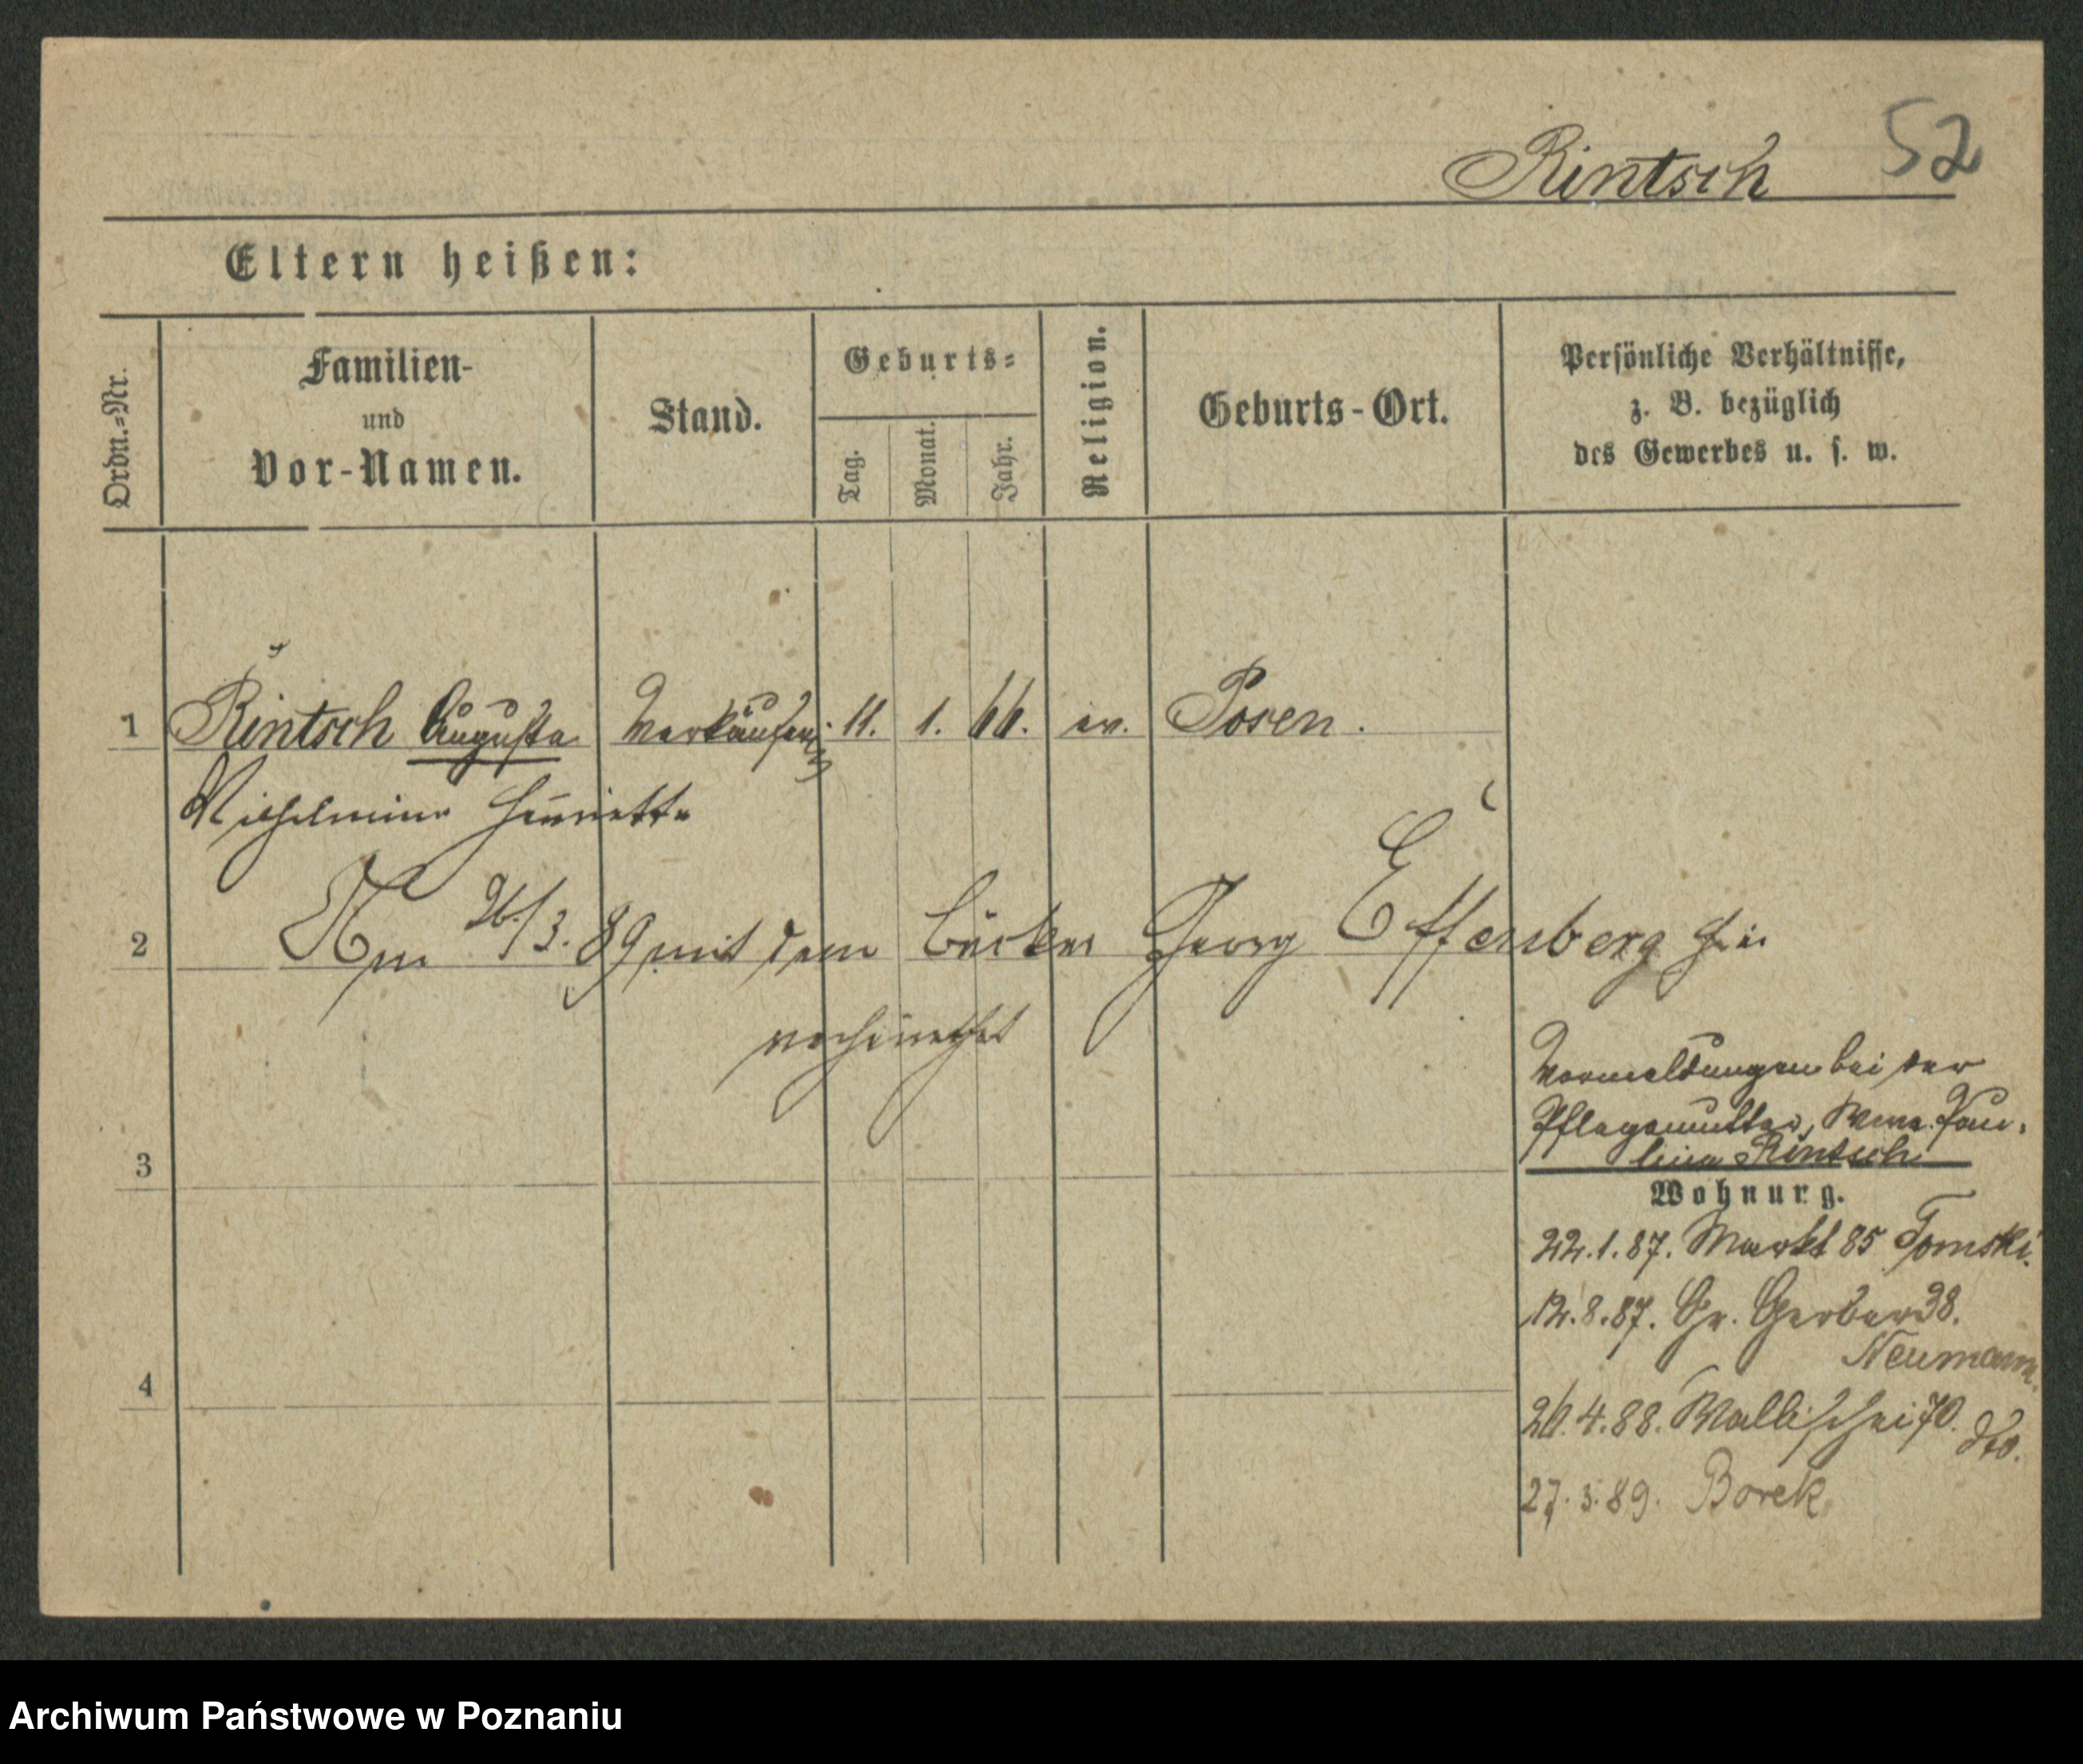 Rintsch 52
Eltern heißen:
Ordn.=Nr.
Familien-
und
Vor-Namen.
Stand.
Geburts=
Tag.
Monat.
Jahr.
Religion.
Geburts-Ort.
Persönliche Verhältnisse,
z. B. bezüglich
des Gewerbes u. s. w.
1 Rintsch Augusta Verkäuferin 11. 1. 66. ev. Posen.
Wilhelmine Henriette
2 Am 26/3. 89 mit dem Bäcker Georg Effenberg hier
verheirathet
Vormeldungen bei der
Pflegemutter, Wwe. Pau-
line Rintsch
3
Wohnung.
22.1.87. Markt 85 Tomski.
12.8.87. Gr. Gerber 38.
Neumann.
4
26.4.88. Wallischei 70. dto.
27.3.89. Borek
Archiwum Państwowe w Poznaniu